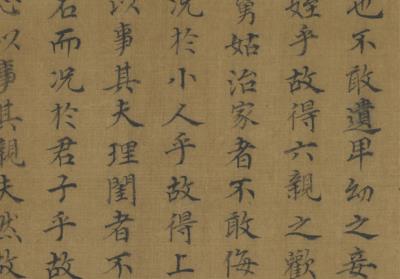 也不敢遺卑幼之妾
姪乎故得六親之歡
舅姑治家者不敢侮
况於小人乎故得上
以事其夫理閨者不
右而况於君子乎故
心以事其親夫然故